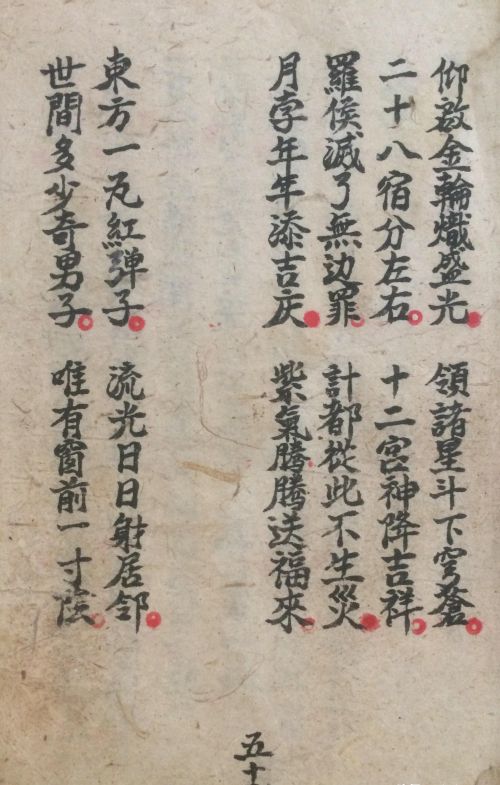 仰啟金輪熾盛光 領諸星斗下穹蒼
二十八宿分左右 十二宮神降吉祥
羅侯滅了無边罪 計都從此不生災
月孛年年添吉庆 紫氣騰騰送福來
東方一丸紅弹子 流光日日射居邻
世間多少奇男子 唯有窗前一寸陰
五十